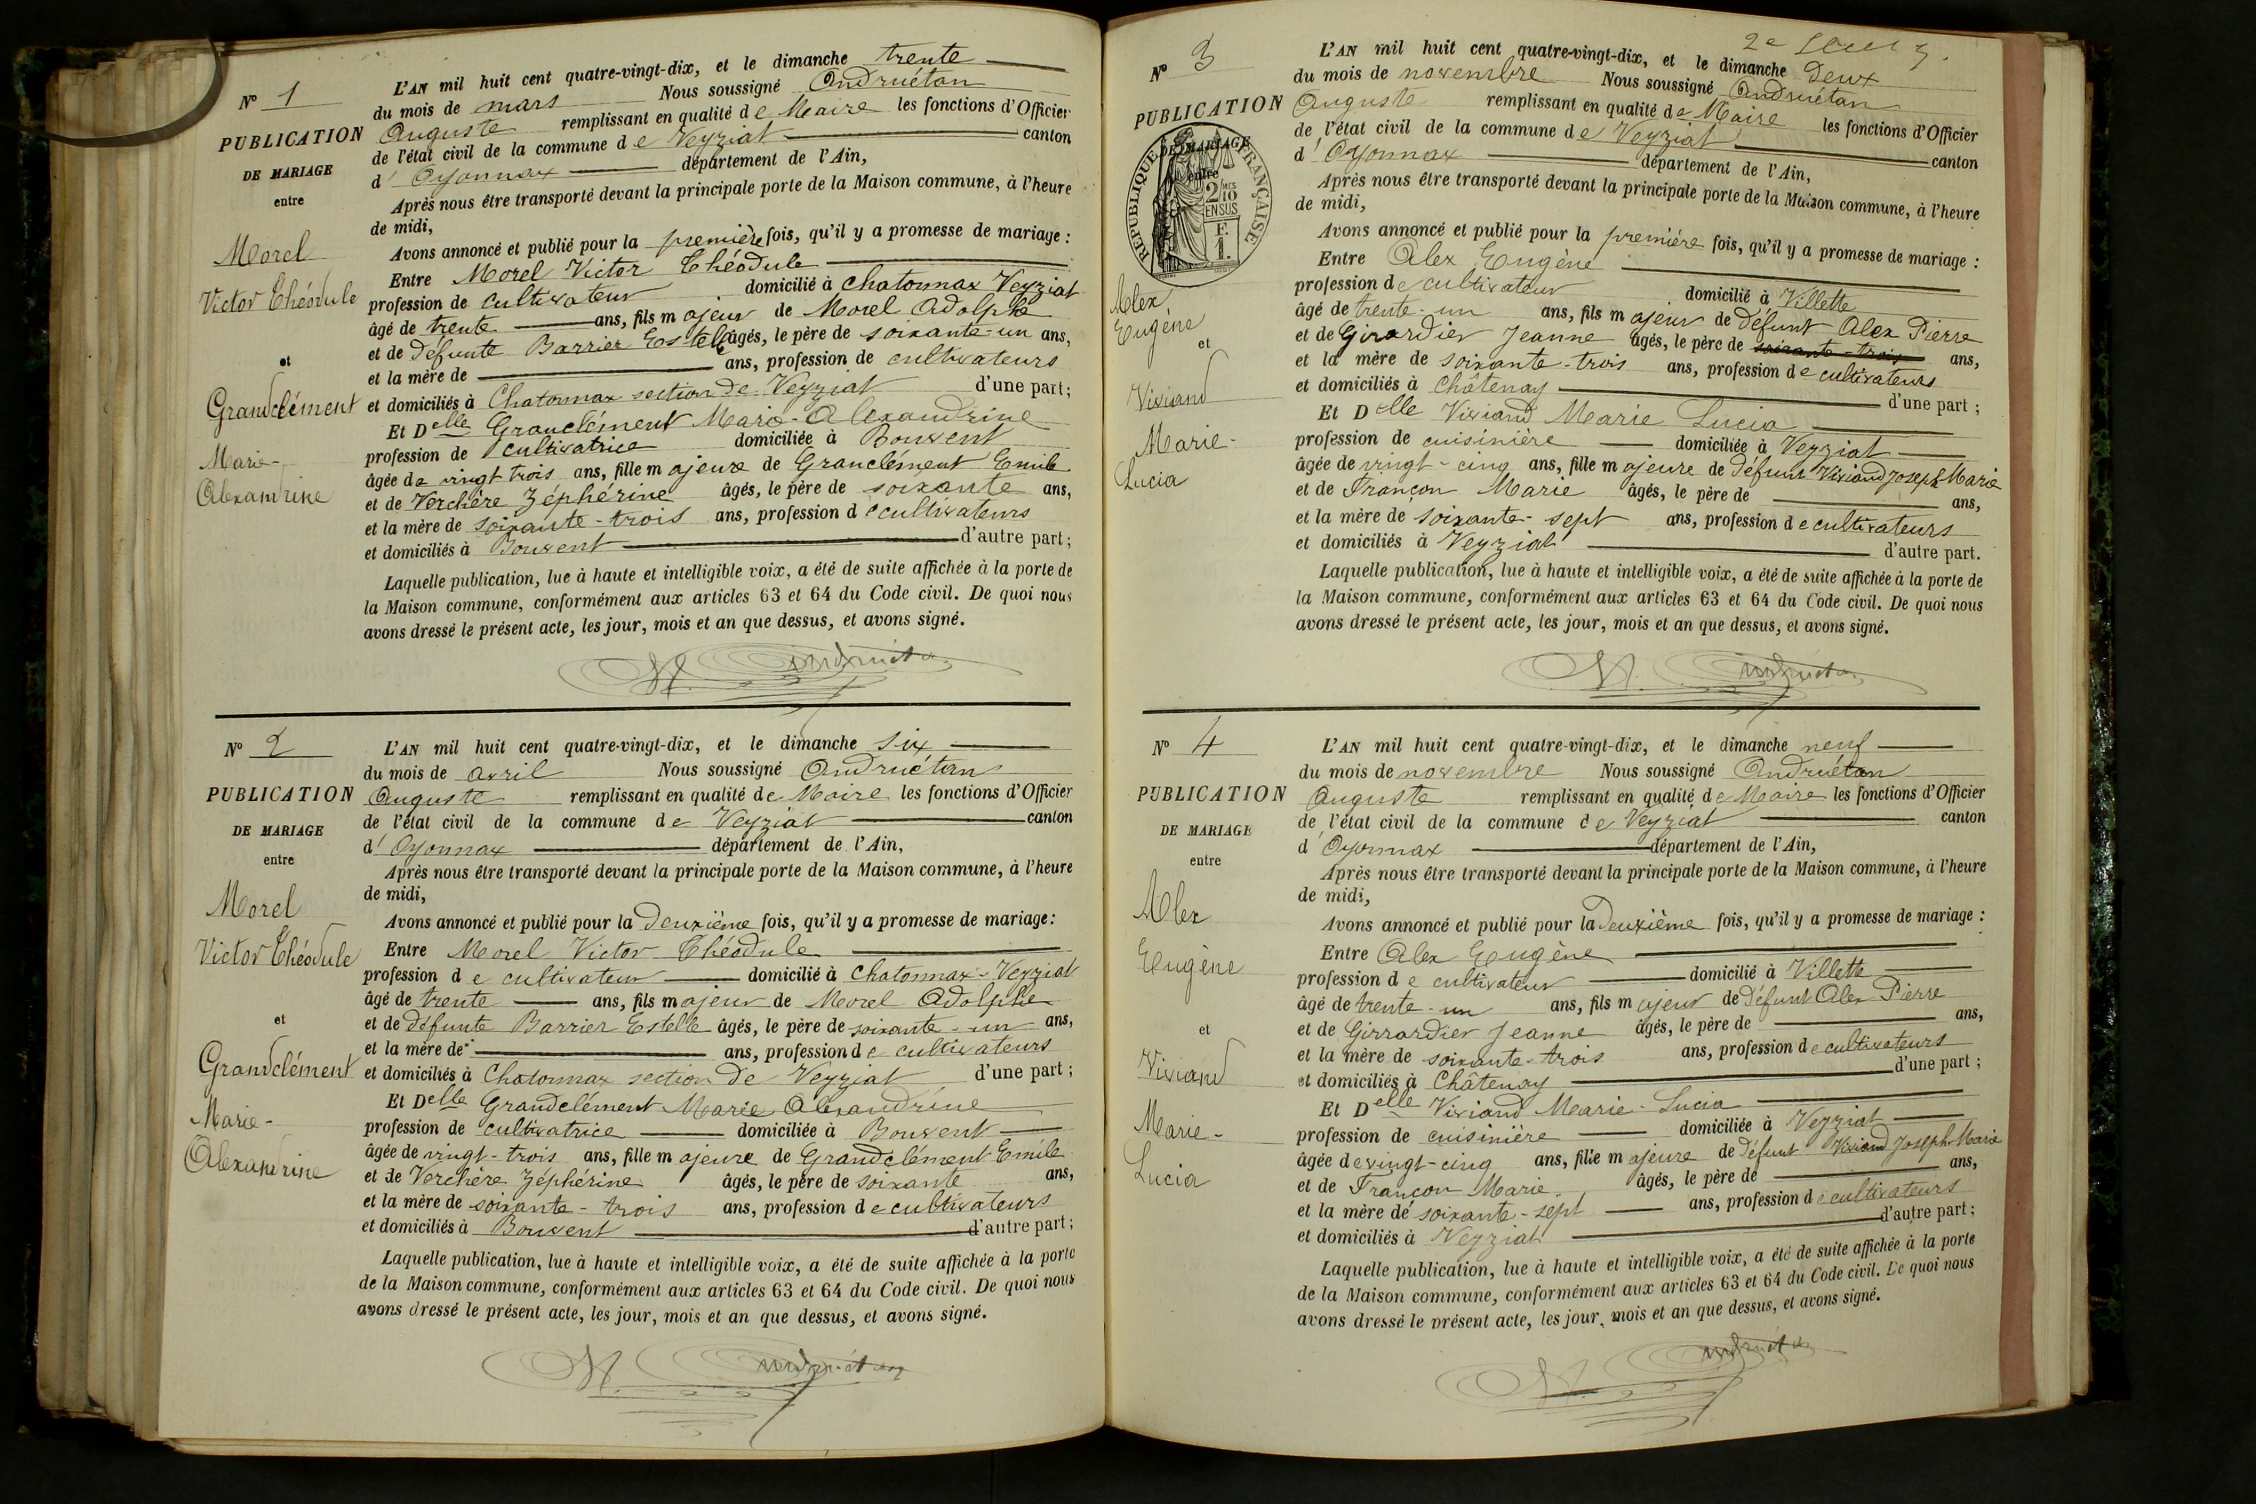 N° 1
PUBLICATION
DE MARIAGE
entre
Morel
Victor Théodule
et
Grandclément
Marie-
Alexandrine
L'AN mil huit cent quatre-vingt-dix, et le dimanche trente
du mois de mars Nous soussigné Andruétan
Auguste remplissant en qualité de Maire les fonctions d'Officier
de l'état civil de la commune de Veyziat canton
d' Oyonnax département de l'Ain,
Après nous être transporté devant la principale porte de la Maison commune, à l'heure
de midi,
Avons annoncé et publié pour la première fois, qu'il y a promesse de mariage :
Entre Morel Victor Théodule
profession de cultivateur domicilié à Chatonnax Veyziat
âgé de trente ans, fils majeur de Morel Adolphe
et de Défunte Barrier Estelle âgés, le père de soixante-un ans,
et la mère de ans, profession de cultivateurs
et domiciliés à Chatonnax section de Veyziat d'une part;
Et Delle Granclément Marie-Alexandrine
profession de cultivatrice domiciliée à Bouvent
âgée de vingt trois ans, fille majeure de Granclément Emile
et de Verchère Zéphérine âgés, le père de soixante ans,
et la mère de soixante-trois ans, profession de cultivateurs
et domiciliés à Bouvent d'autre part;
Laquelle publication, lue à haute et intelligible voix, a été de suite affichée à la porte de
la Maison commune, conformément aux articles 63 et 64 du Code civil. De quoi nous
avons dressé le présent acte, les jour, mois et an que dessus, et avons signé.
Andruétan
N° 2
PUBLICATION
DE MARIAGE
entre
Morel
Victor Théodule
et
Grandclément
Marie-
Alexandrine
L'AN mil huit cent quatre-vingt-dix, et le dimanche six
du mois de avril Nous soussigné Andruétan
Auguste remplissant en qualité de Maire les fonctions d'Officier
de l'état civil de la commune de Veyziat canton
d' Oyonnax département de l'Ain,
Après nous être transporté devant la principale porte de la Maison commune, à l'heure
de midi,
Avons annoncé et publié pour la Deuxième fois, qu'il y a promesse de mariage:
Entre Morel Victor Théodule
profession de cultivateur domicilié à Chatonnax-Veyziat
âgé de trente ans, fils majeur de Morel Adolphe
et de défunte Barrier Estelle âgés, le père de soixante-un ans,
et la mère de ans, profession de cultivateurs
et domiciliés à Chatonnax section de Veyziat d'une part;
Et Delle Grandclément Marie Alexandrine
profession de cultivatrice domiciliée à Bouvent
âgée de vingt-trois ans, fille majeure de Grandclément Emile
et de Verchère Zéphérine âgés, le père de soixante ans,
et la mère de soixante-trois ans, profession de cultivateurs
et domiciliés à Bouvent d'autre part;
Laquelle publication, lue à haute et intelligible voix, a été de suite affichée à la porte
de la Maison commune, conformément aux articles 63 et 64 du Code civil. De quoi nous
avons dressé le présent acte, les jour, mois et an que dessus, et avons signé.
Andruétan
2e
N° 3
PUBLICATION
DE MARIAGE
entre
REPUBLIQUE FRANÇAISE
2 MES
10
EN SUS
F.
1.
Alex
Eugène
et
Viviand
Marie-
Lucia
L'AN mil huit cent quatre-vingt-dix, et le dimanche Deux
du mois de novembre Nous soussigné Andruétan
Auguste remplissant en qualité de Maire les fonctions d'Officier
de l'état civil de la commune de Veyziat canton
d' Oyonnax département de l'Ain,
Après nous être transporté devant la principale porte de la Maison commune, à l'heure
de midi,
Avons annoncé et publié pour la première fois, qu'il y a promesse de mariage :
Entre Alex Eugène
profession de cultivateur domicilié à Villette
âgé de trente-un ans, fils majeur de Défunt Alex Pierre
et de Girardier Jeanne âgés, le père de soixante-trois ans,
et la mère de soixante-trois ans, profession de cultivateurs
et domiciliés à Châtenay d'une part;
Et Delle Viviand Marie Lucia
profession de cuisinière domiciliée à Veyziat
âgée de vingt-cinq ans, fille majeure de défunt Viviand Joseph Marie
et de Françon Marie âgés, le père de ans,
et la mère de soixante-sept ans, profession de cultivateurs
et domiciliés à Veyziat d'autre part.
Laquelle publication, lue à haute et intelligible voix, a été de suite affichée à la porte de
la Maison commune, conformément aux articles 63 et 64 du Code civil. De quoi nous
avons dressé le présent acte, les jour, mois et an que dessus, et avons signé.
Andruétan
N° 4
PUBLICATION
DE MARIAGE
entre
Alex
Eugène
et
Viviand
Marie-
Lucia
L'AN mil huit cent quatre-vingt-dix, et le dimanche neuf
du mois de novembre Nous soussigné Andruétan
Auguste remplissant en qualité de Maire les fonctions d'Officier
de l'état civil de la commune de Veyziat canton
d' Oyonnax département de l'Ain,
Après nous être transporté devant la principale porte de la Maison commune, à l'heure
de midi,
Avons annoncé et publié pour la Deuxième fois, qu'il y a promesse de mariage :
Entre Alex Eugène
profession de cultivateur domicilié à Villette
âgé de trente-un ans, fils majeur de Défunt Alex Pierre
et de Girrardier Jeanne âgés, le père de ans,
et la mère de soixante-trois ans, profession de cultivateurs
et domiciliés à Châtenay d'une part;
Et Delle Viviand Marie-Lucia
profession de cuisinière domiciliée à Veyziat
âgée de vingt-cinq ans, fille majeure de défunt Viviand Joseph Marie
et de Françon Marie. âgés, le père de ans,
et la mère de soixante-sept ans, profession de cultivateurs
et domiciliés à Veyziat d'autre part;
Laquelle publication, lue à haute et intelligible voix, a été de suite affichée à la porte
de la Maison commune, conformément aux articles 63 et 64 du Code civil. De quoi nous
avons dressé le présent acte, les jour, mois et an que dessus, et avons signé.
Andruétan